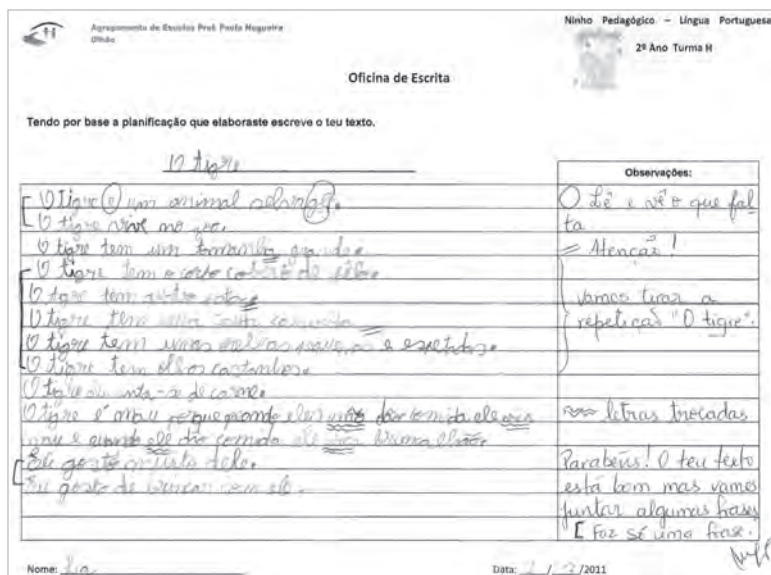 Agrupamento de Escolas Prof. Paula Nogueira
Olhão
Ninho Pedagógico – Língua Portuguesa
2º Ano Turma H
Oficina de Escrita
Tendo por base a planificação que elaboraste escreve o teu texto.
O tigre
O tigre e um animal
O tigre vive no
O tigre tem um tamanho grande.
O tigre tem o corpo
O tigre tem quatro patas
O tigre tem uma
O tigre tem umas e espetadas.
O tigre tem olhos castanhos.
O tigre de carne.
O tigre é mau porque quando eles não dão comida ele
mau e quando ele dão comida ele
Eu gosto muito dele.
Eu gosto de brincar com ele.
Observações:
Lê e vê o que fal
ta
= Atenção!
vamos tirar a
repetição "O tigre".
letras trocadas
Parabéns! O teu texto
está bom mas vamos
juntar algumas frases
[ Faz só uma frase.
Nome: Lia
Data: / /2011